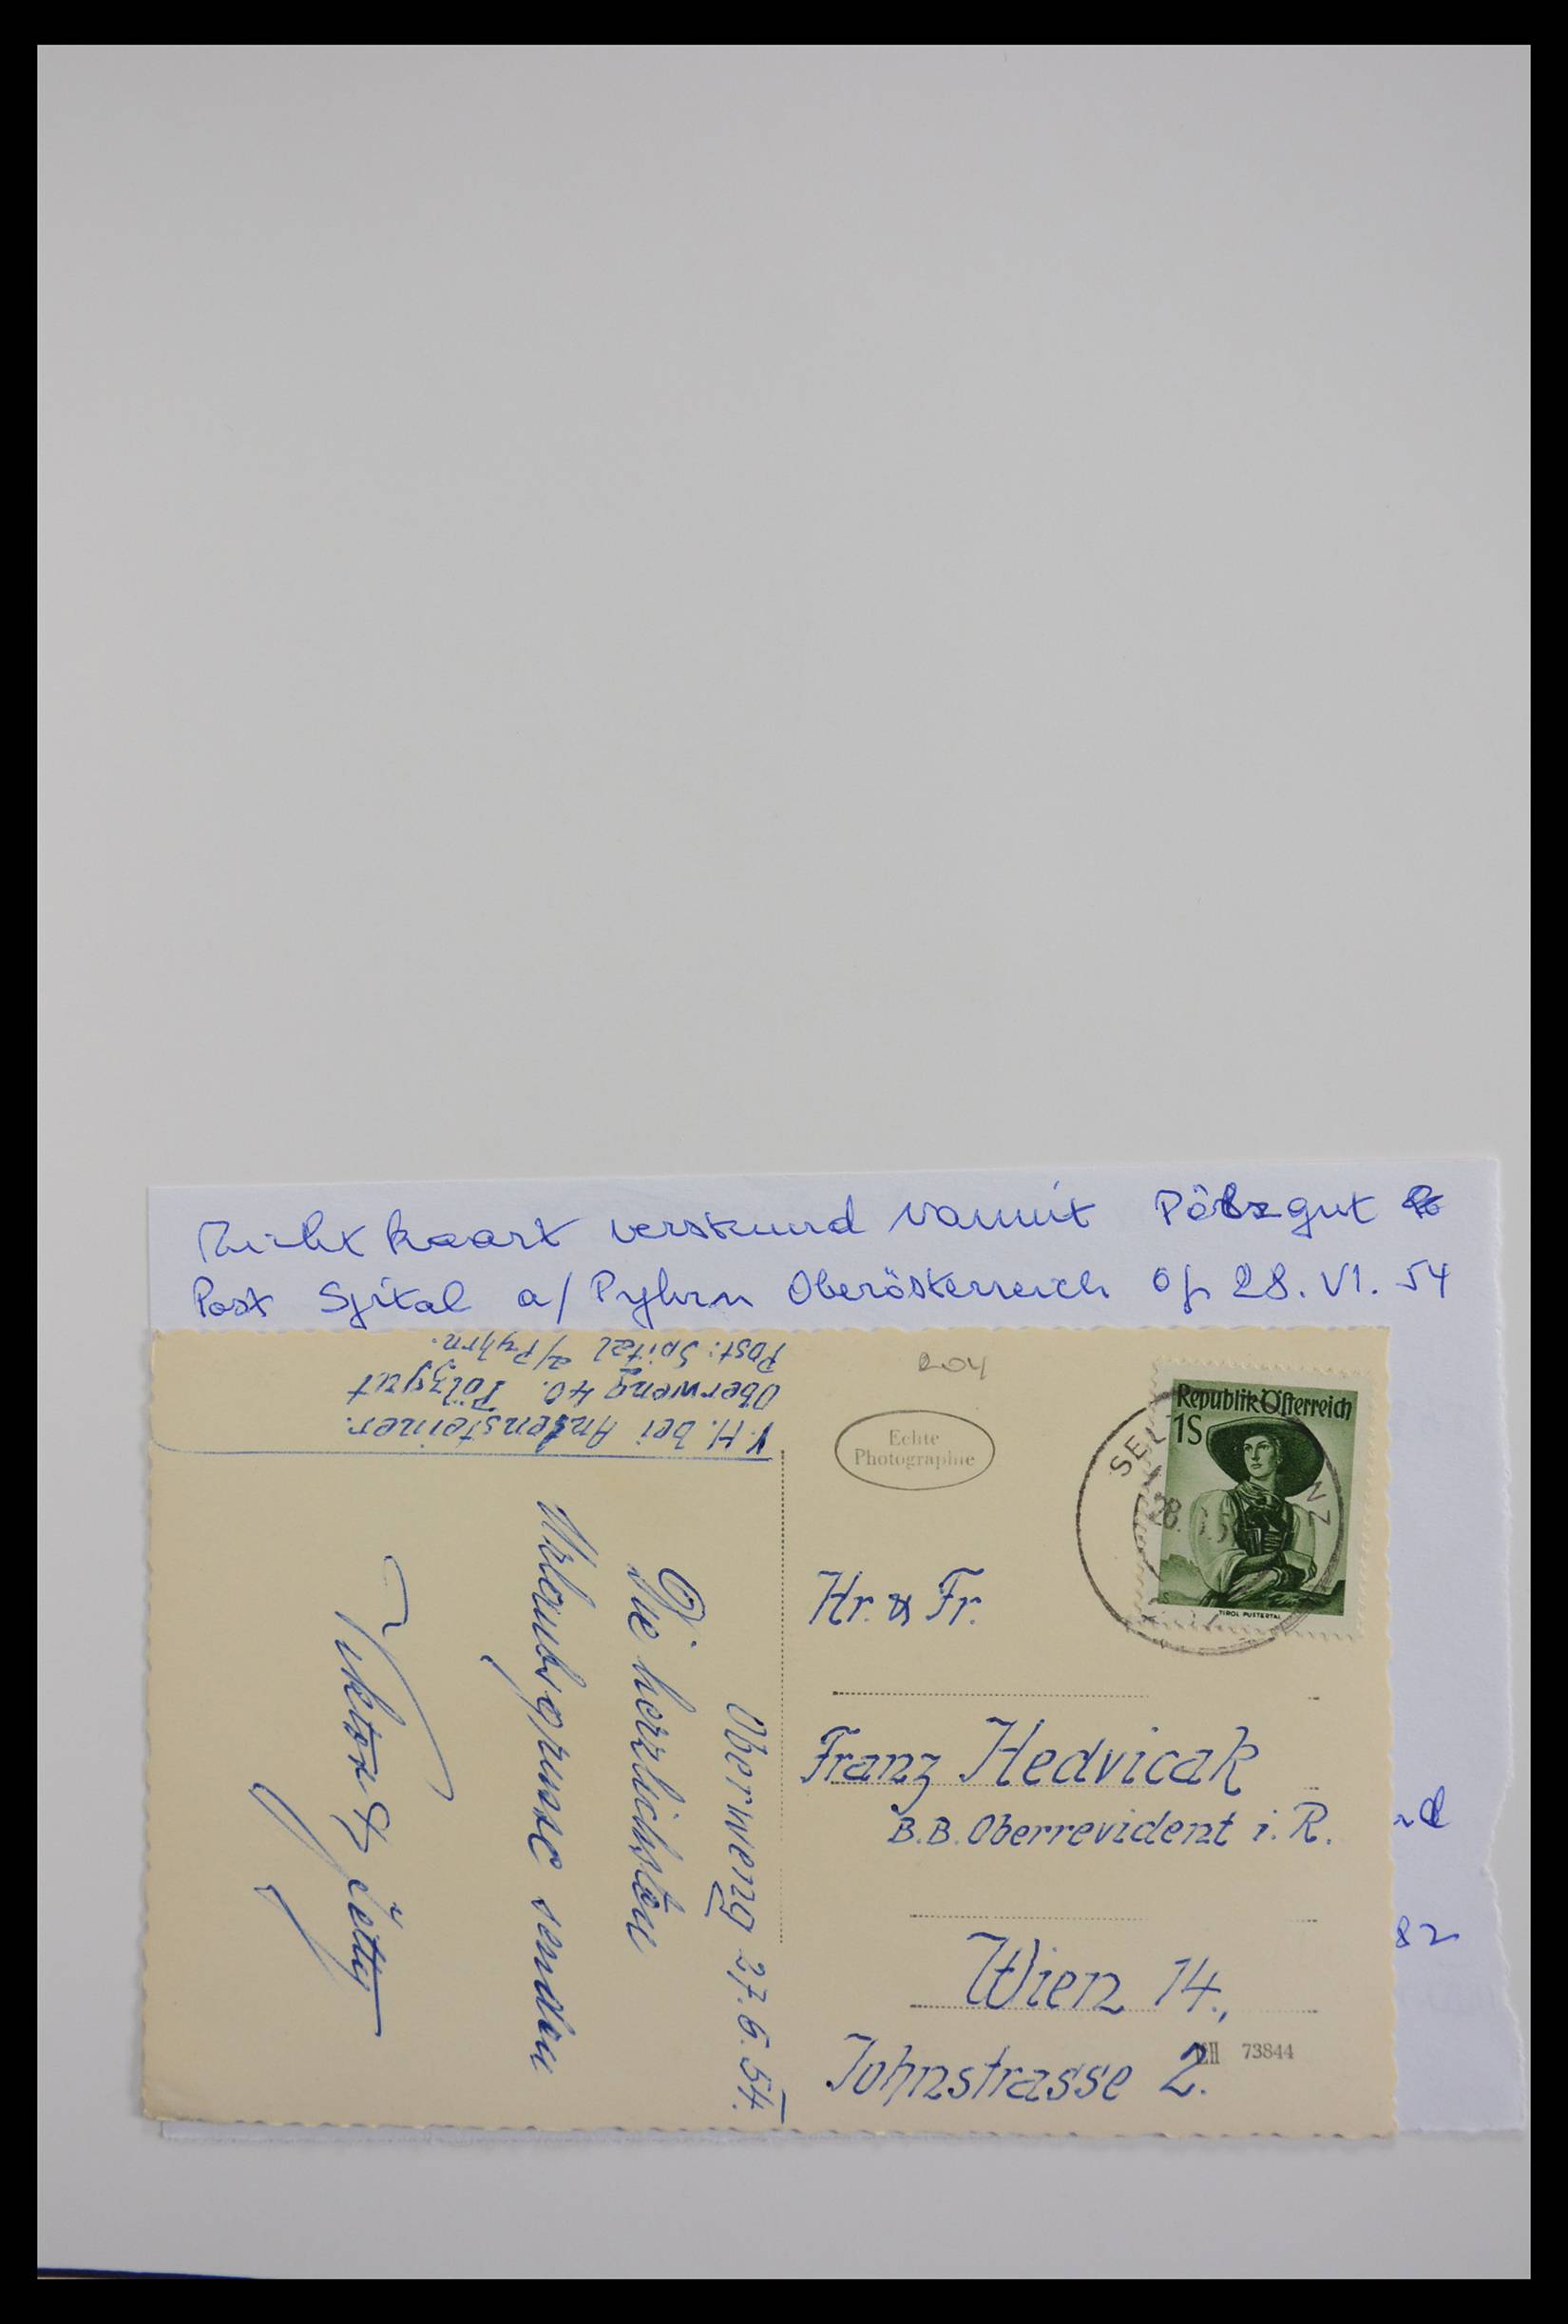 Zichtkaart verstuurd vanuit Pölzgut
Post Spital a/Pyhrn Oberösterreich op 28. VI. 54
V. H. bei Antensteiner.
Oberweng 40. Pölzgut
Post: Spital a/Pyhrn.
204
Echte
Photographie
Republik Österreich
1S
TIROL PUSTERTAL
28.
Hr. & Fr.
Franz Hedvicak
B.B. Oberrevident i. R.
Wien 14.,
Johnstrasse 2.
73844
Oberweng 27.6.54.
Die herzlichsten
Urlaubsgrüsse senden
Viktor &
82